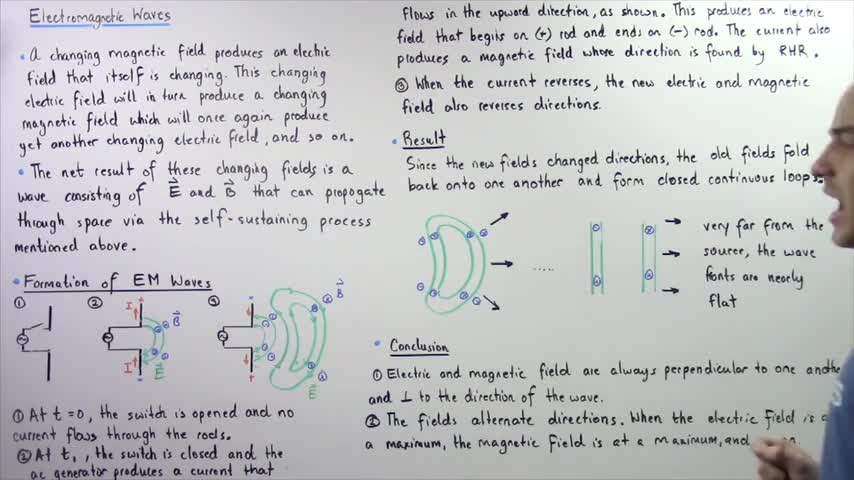 Electromagnetic Waves
• A changing magnetic field produces an electric
field that itself is changing. This changing
electric field will in turn produce a changing
magnetic field which will once again produce
yet another changing electric field, and so on.
• The net result of these changing fields is a
wave consisting of E⃗ and B⃗ that can propogate
through space via the self-sustaining process
mentioned above.
• Formation of EM Waves
① ② ③
I B⃗ B⃗
I E⃗ E⃗
① At t=0, the switch is opened and no
current flows through the rods.
② At t₁, the switch is closed and the
ac generator produces a current that
flows in the upward direction, as shown. This produces an electric
field that begins on (+) rod and ends on (-) rod. The current also
produces a magnetic field whose direction is found by RHR.
③ When the current reverses, the new electric and magnetic
field also reverses directions.
• Result
Since the new fields changed directions, the old fields fold
back onto one another and form closed continuous loops.
.....
very far from the
source, the wave
fonts are nearly
flat
• Conclusion
① Electric and magnetic field are always perpendicular to one
and ⊥ to the direction of the wave.
② The fields alternate directions. When the electric field is
a maximum, the magnetic field is at a maximum, and